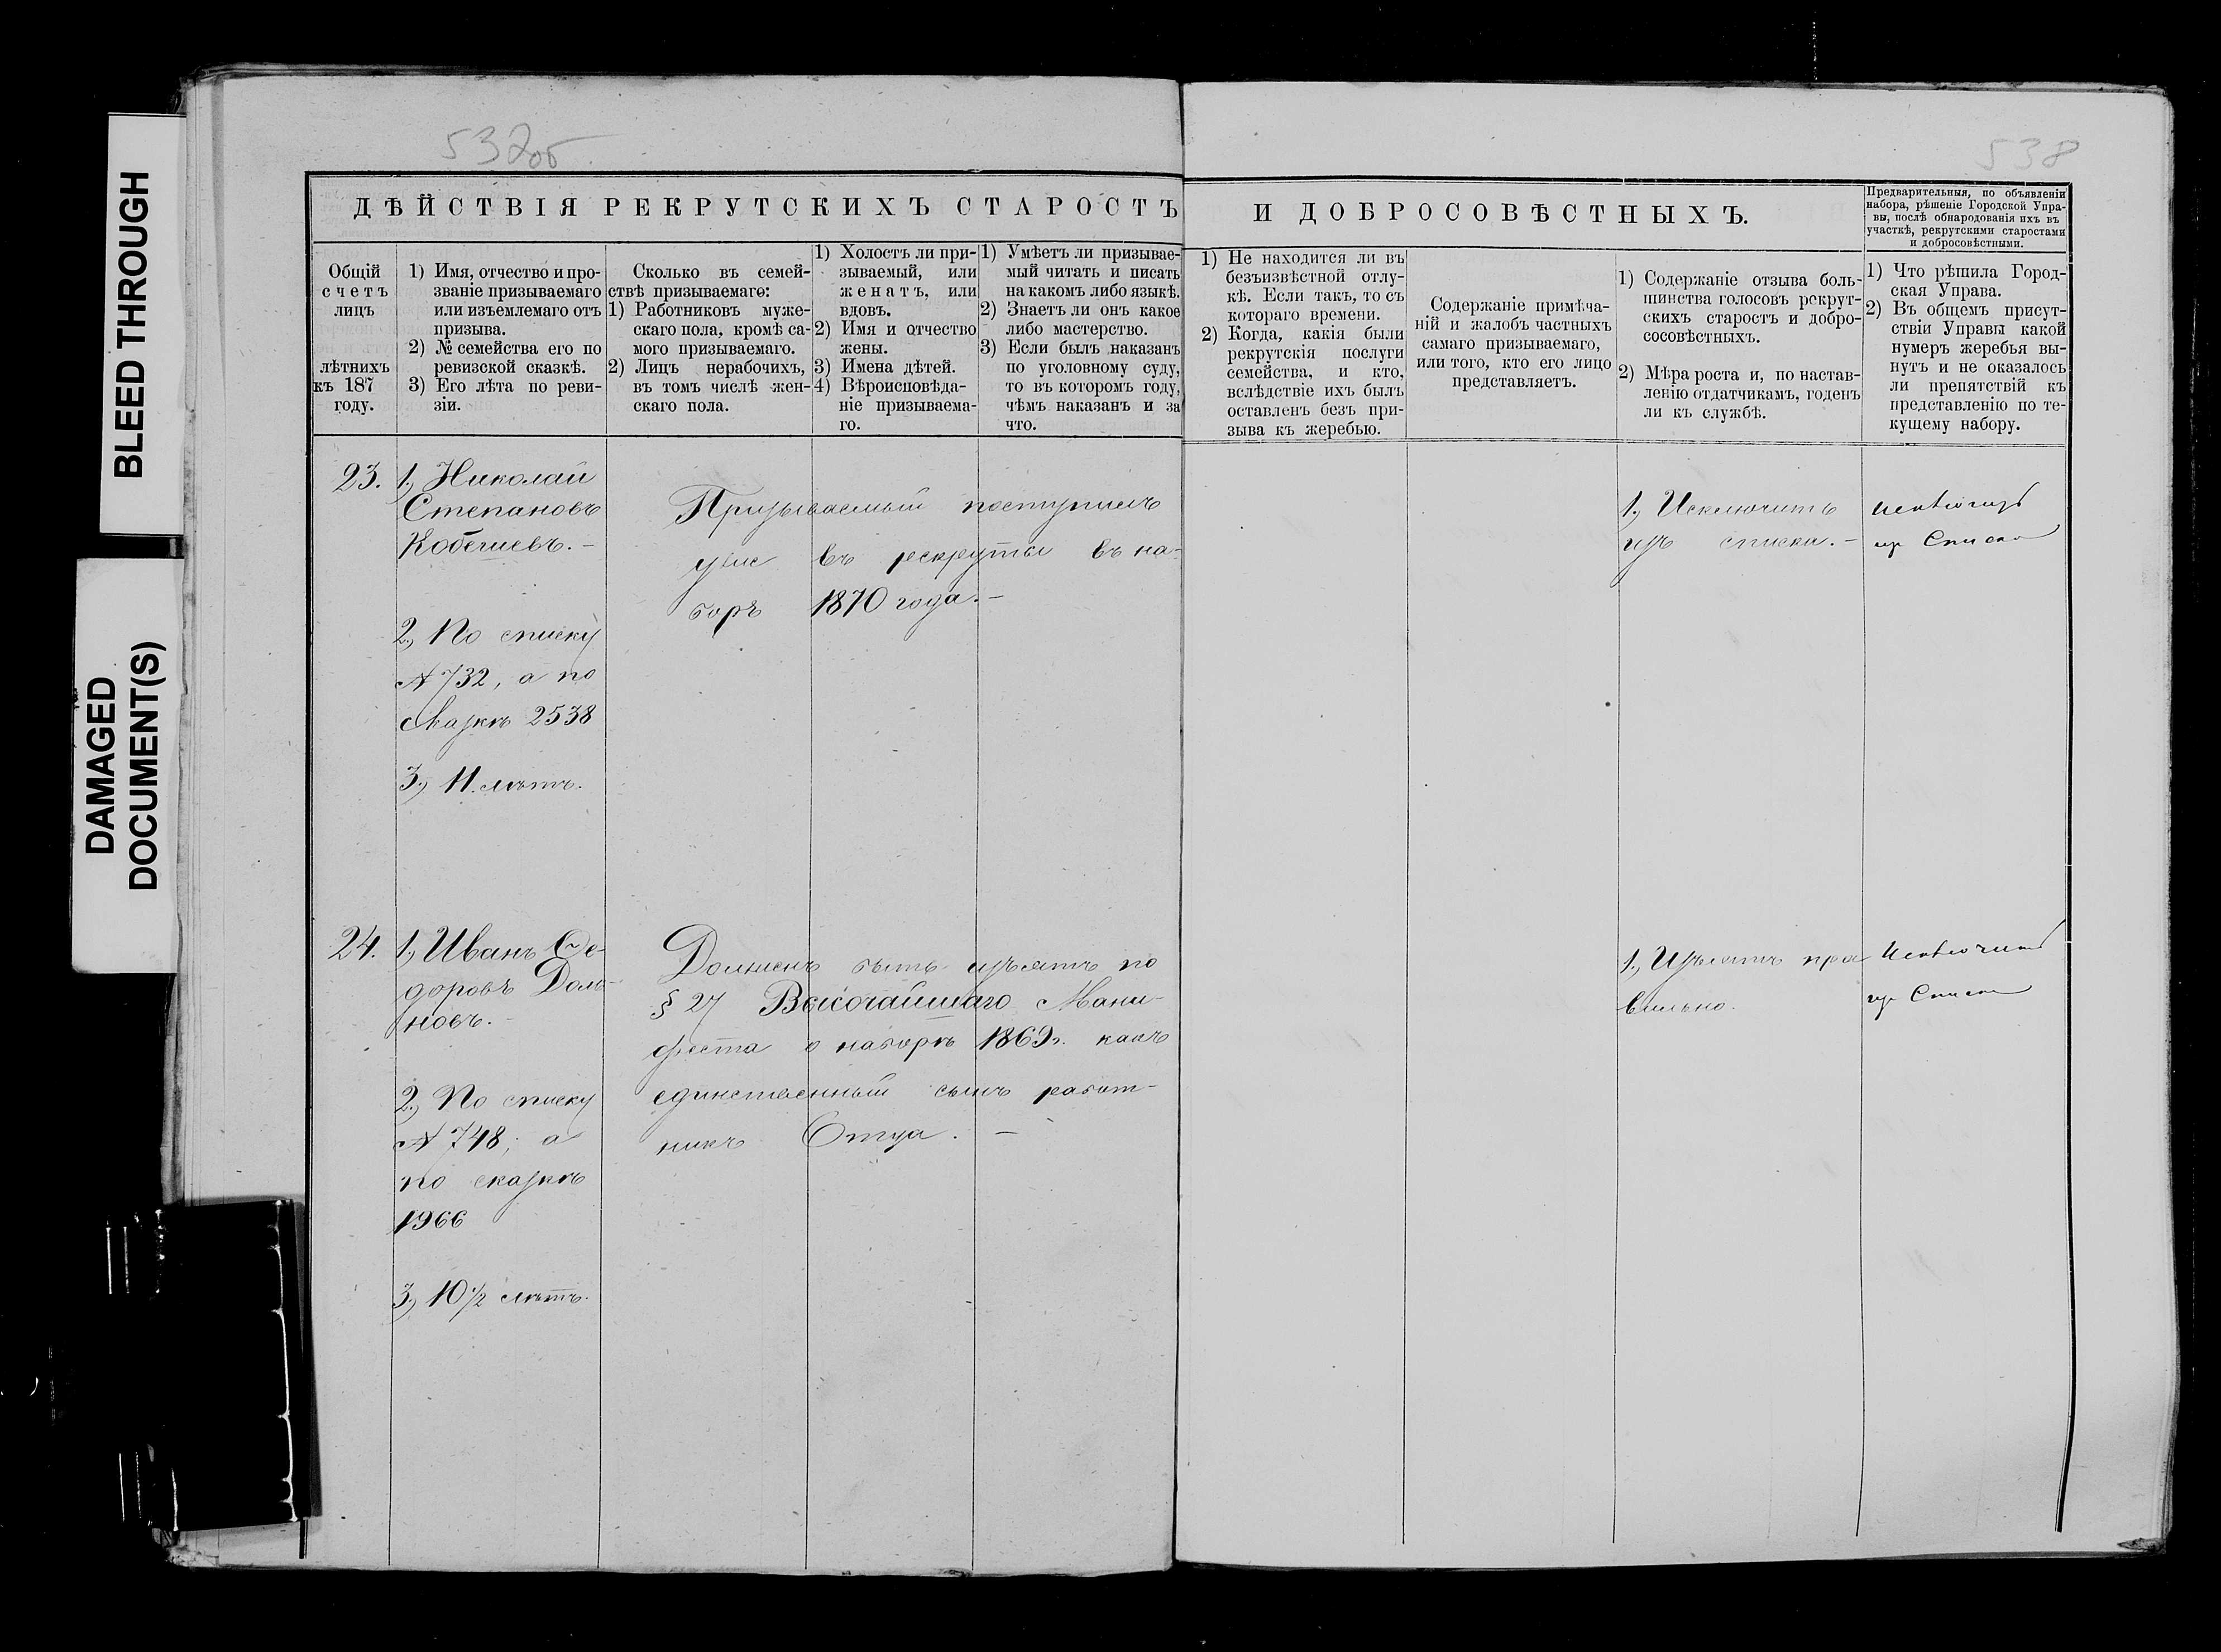 BLEED THROUGH
DAMAGED
DOCUMENT(S)
532об.
538
ДѢЙСТВІЯ РЕКРУТСКИХЪ СТАРОСТЪ
И ДОБРОСОВѢСТНЫХЪ.
Предварительныя, по объявленіи
набора, рѣшеніе Городской Упра-
вы, послѣ обнародованія ихъ въ
участкѣ, рекрутскими старостами
и добросовѣстными.
Общій
счетъ
лицъ
лѣтнихъ
къ 187
году.
1) Имя, отчество и про-
званіе призываемаго
или изъемлемаго отъ
призыва.
2) № семейства его по
ревизской сказкѣ.
3) Его лѣта по реви-
зіи.
Сколько въ семей-
ствѣ призываемаго:
1) Работниковъ муже-
скаго пола, кромѣ са-
мого призываемаго.
2) Лицъ нерабочихъ,
въ томъ числѣ жен-
скаго пола.
1) Холостъ ли при-
зываемый, или
женатъ, или
вдовъ.
2) Имя и отчество
жены.
3) Имена дѣтей.
4) Вѣроисповѣда-
ніе призываема-
го.
1) Умѣетъ ли призывае-
мый читать и писать
на какомъ либо языкѣ.
2) Знаетъ ли онъ какое
либо мастерство.
3) Если былъ наказанъ
по уголовному суду,
то въ которомъ году,
чѣмъ наказанъ и за
что.
1) Не находится ли въ
безъизвѣстной отлу-
кѣ. Если такъ, то съ
котораго времени.
2) Когда, какія были
рекрутскія послуги
семейства, и кто,
вслѣдствіе ихъ былъ
оставленъ безъ при-
зыва къ жеребью.
Содержаніе примѣча-
ній и жалобъ частныхъ
самаго призываемаго,
или того, кто его лицо
представляетъ.
1) Содержаніе отзыва боль-
шинства голосовъ рекрут-
скихъ старостъ и добро-
сосовѣстныхъ.
2) Мѣра роста и, по настав-
ленію отдатчикамъ, годенъ
ли къ службѣ.
1) Что рѣшила Город-
ская Управа.
2) Въ общемъ присут-
ствіи Управы какой
нумеръ жеребья вы-
нутъ и не оказалось
ли препятствій къ
представленію по те-
кущему набору.
23. 1., Николай
Степановъ
Кобечиевъ.-
2., По списку
№ 732, а по
сказкѣ 2538
3., 11 лѣтъ.
Призываемый поступилъ
уже въ рекруты въ на-
боръ 1870 года.-
1., Исключить
изъ списка.-
Исключить
изъ Списка
24. 1., Иванъ Ѳе-
доровъ Доло-
новъ.-
2., По списку
№ 748, а
по сказкѣ
1966
3., 10 1/2 лѣтъ.
Долженъ быть изъятъ по
§ 27 Высочайшаго Мани-
феста о наборѣ 1869 г. какъ
единственный сынъ работ-
никъ Отца.-
1., Изъятъ пра
вильно.
Исключить
изъ Списка